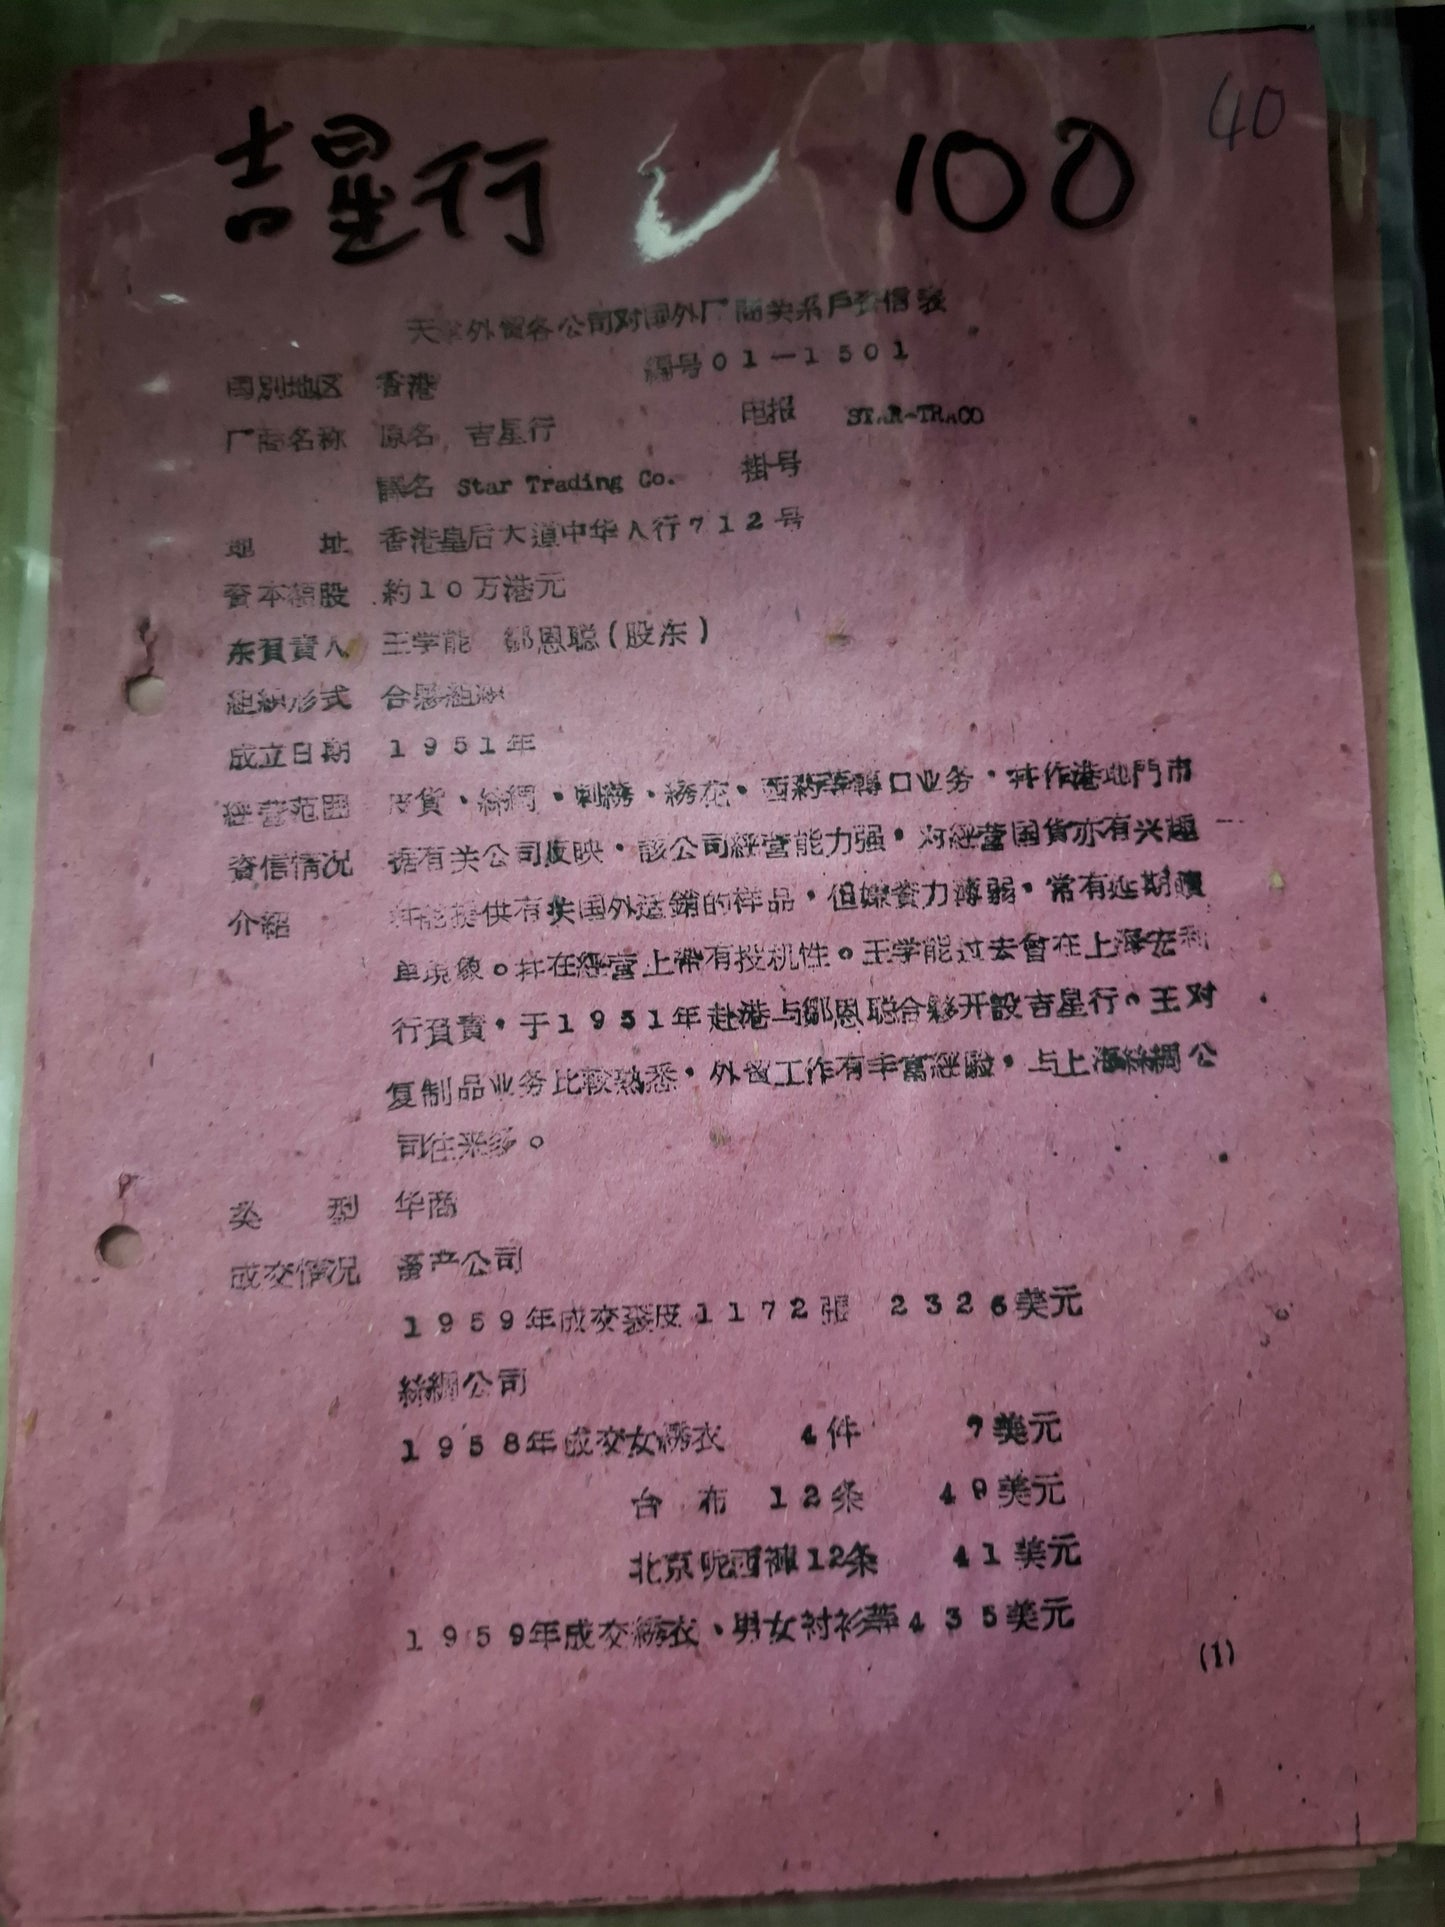 40
吉星行 100
天津外貿各公司对国外厂商关系戶資信表
編号01—1501
国別地区 香港
厂商名称 原名 吉星行 电报 STAR-TRACO
譯名 Star Trading Co. 掛号
地 址 香港皇后大道中华人行712号
資本額股 約10万港元
东負責人 王学能 鄒恩聪(股东)
組織形式 合夥組織
成立日期 1951年
經营范囲 皮貨、絲綢、刺綉、綉花、西葯等轉口业务，幷作港地門市
資信情况 据有关公司反映，該公司經营能力强，对經营国貨亦有兴趣
介紹 幷能提供有关国外适銷的样品，但嫌資力薄弱，常有延期贖
单現象。幷在經营上帶有投机性。王学能过去曾在上海宏利
行負責，于1951年赴港与鄒恩聪合夥开設吉星行。王对
复制品业务比較熟悉，外貿工作有丰富經驗，与上海絲綢公
司往来多。
类 型 华商
成交情况 畜产公司
1959年成交 皮1172張 2326美元
絲綢公司
1958年成交女綉衣 4件 7美元
台 布 12条 49美元
北京呢西褲12条 41美元
1959年成交綉衣、男女衬衫等435美元
(1)